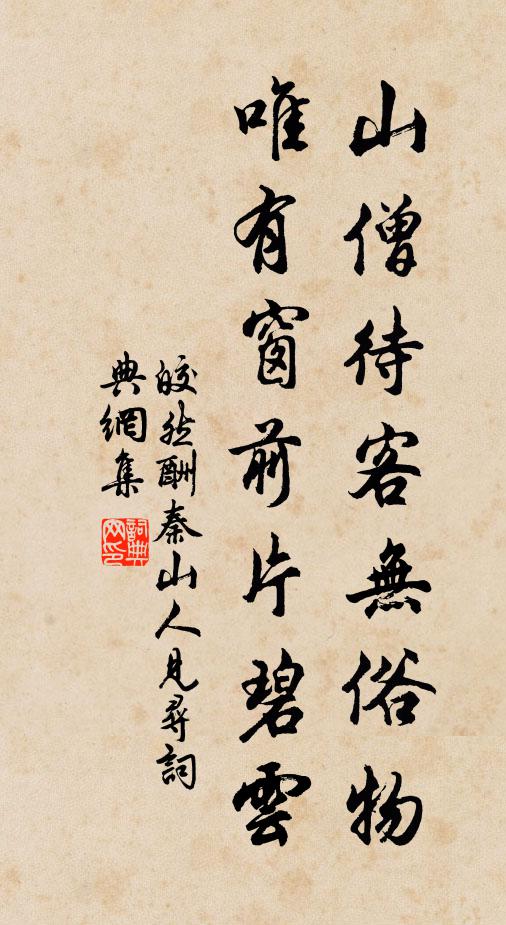 山僧待客無俗物
唯有窗前片碧雲
皎然酬秦山人見尋詞
典網集
詞典網印